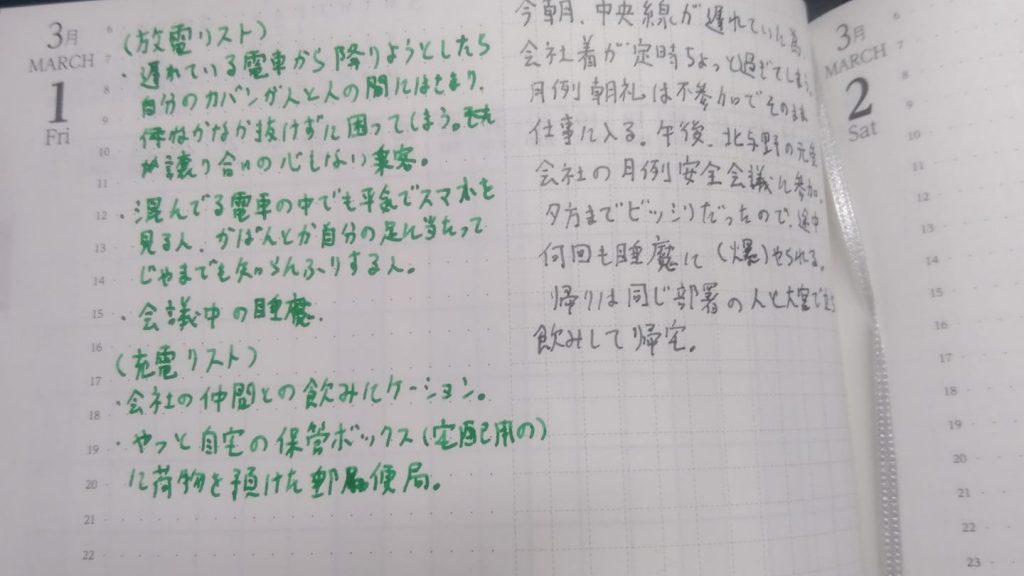 3月
MARCH
1
Fri
6
7
8
9
10
11
12
13
14
15
16
17
18
19
20
21
22
(放電リスト)
・遅れている電車から降りようとしたら
自分のカバンが人と人の間にはさまり、
なかなか抜けずに困ってしまう。
が譲り合いの心もない乗客。
・混んでる電車の中でも平気でスマホを
見る人、かばんとか自分の足に当たって
じゃまでも知らんふりする人。
・会議中の睡魔。
(充電リスト)
・会社の仲間との飲みにケーション。
・やっと自宅の保管ボックス(宅配用の)
に荷物を預けた郵便局。
今朝、中央線が遅れていた為、
会社着が定時ちょっと過ぎてしまう。
月例朝礼は不参加でそのまま
仕事に入る。午後、北与野の元
会社の月例安全会議に参加。
夕方までビッシリだったので、途中
何回も睡魔に(爆)やられる。
帰りは同じ部署の人と大宮で
飲みして帰宅。
3月
MARCH
2
Sat
6
7
8
9
10
11
12
13
14
15
16
17
18
19
20
21
22
23